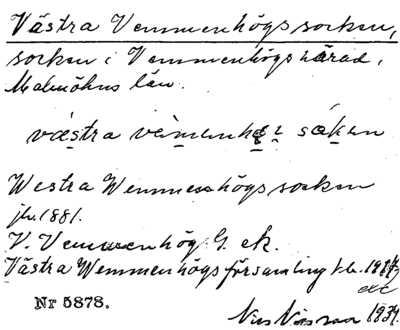 Västra Vemmenhögs socken,
socken i Vemmenhögs härad,
Malmöhus län.
västra
Westra Wemmenhögs socken
jb. 1881.
V. Vemmenhög G. ek.
Västra Wemmenhögs församling
Nr 5878.
1934.